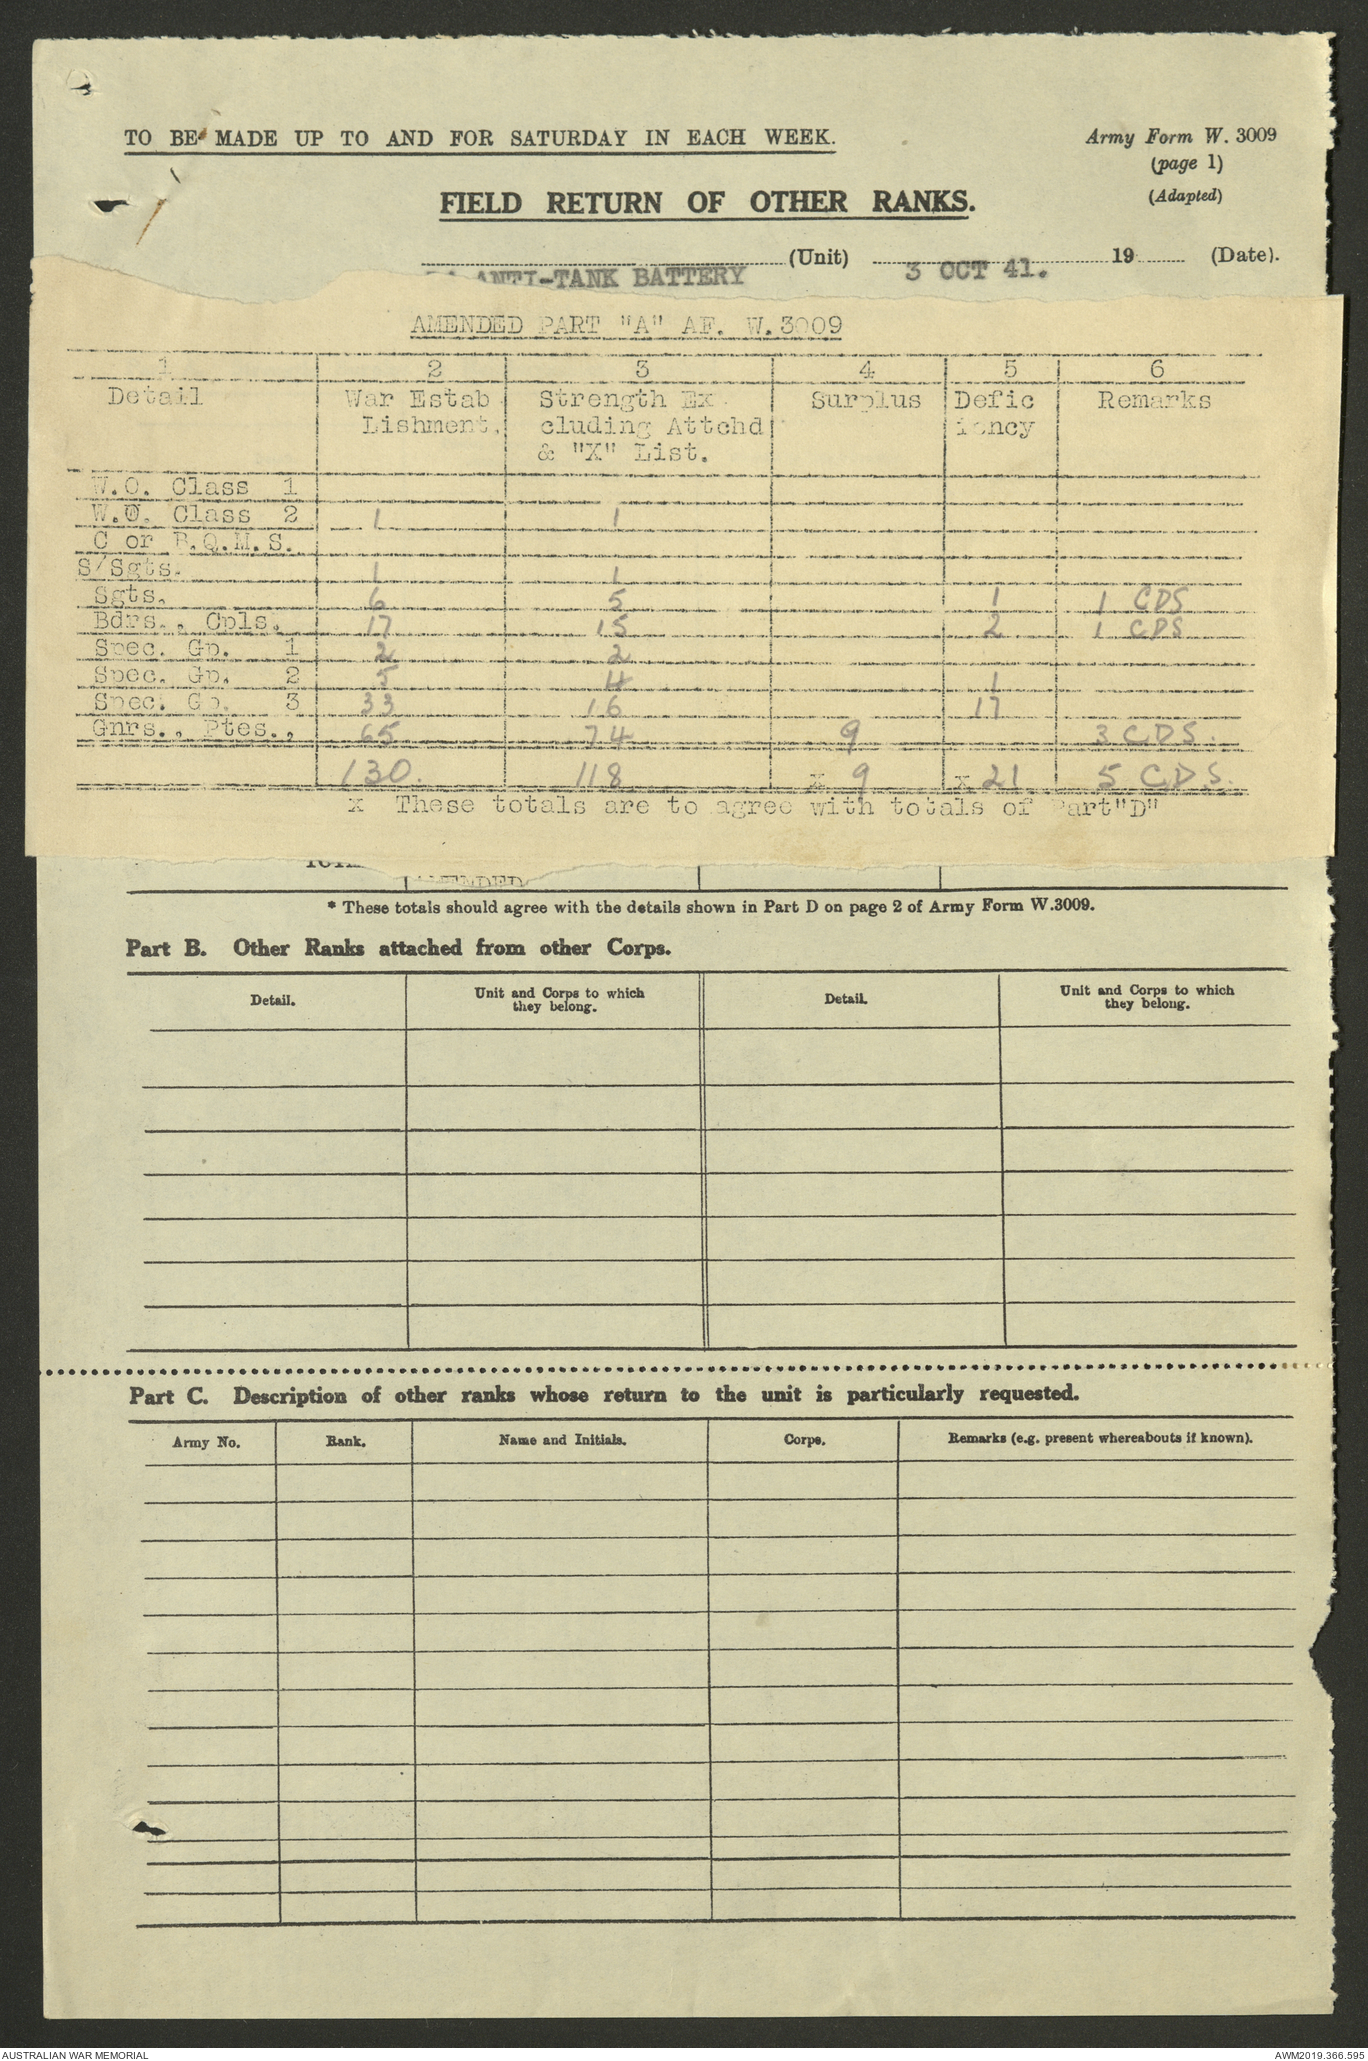 TO BE MADE UP TO AND FOR SATURDAY IN EACH WEEK.
Army Form W. 3009
(page 1)
(Adapted)
FIELD RETURN OF OTHER RANKS.
(Unit) 19 (Date).
ANTI-TANK BATTERY 3 OCT 41.
AMENDED PART "A" AF. W.3009
1 2 3 4 5 6
Detail War Estab Strength Ex Surplus Defic Remarks
Lishment. cluding Attchd iency
& "X" List.
W.O. Class 1
W.O. Class 2 1 1
C or B.Q.M.S.
S/Sgts. 1 1
Sgts. 6 5 1 1 CDS
Bdrs., Cpls. 17 15 2 1 CDS
Spec. Gp. 1 2 2
Spec. Gp. 2 5 4 1
Spec. Gp. 3 33 16 17
Gnrs., Ptes., 65 74 9 3 CDS.
130. 118 x 9 x 21 5 CDS.
x These totals are to agree with totals of Part "D"
AMENDED
* These totals should agree with the details shown in Part D on page 2 of Army Form W.3009.
Part B. Other Ranks attached from other Corps.
Detail. Unit and Corps to which they belong. Detail. Unit and Corps to which they belong.
Part C. Description of other ranks whose return to the unit is particularly requested.
Army No. Rank. Name and Initials. Corps. Remarks (e.g. present whereabouts if known).
AUSTRALIAN WAR MEMORIAL
AWM2019.366.595